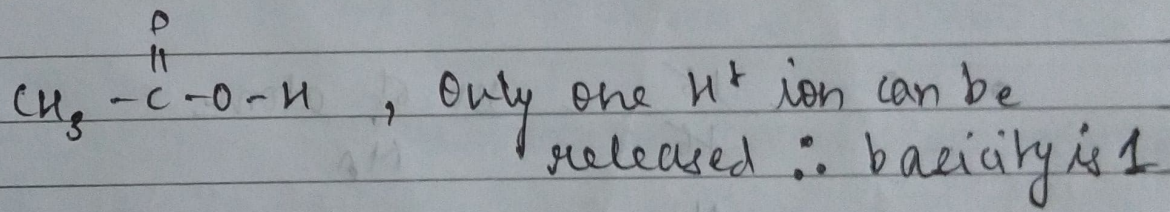 O
||
CH₃ - C - O - H , Only one H⁺ ion can be
released ∴ basicity is 1